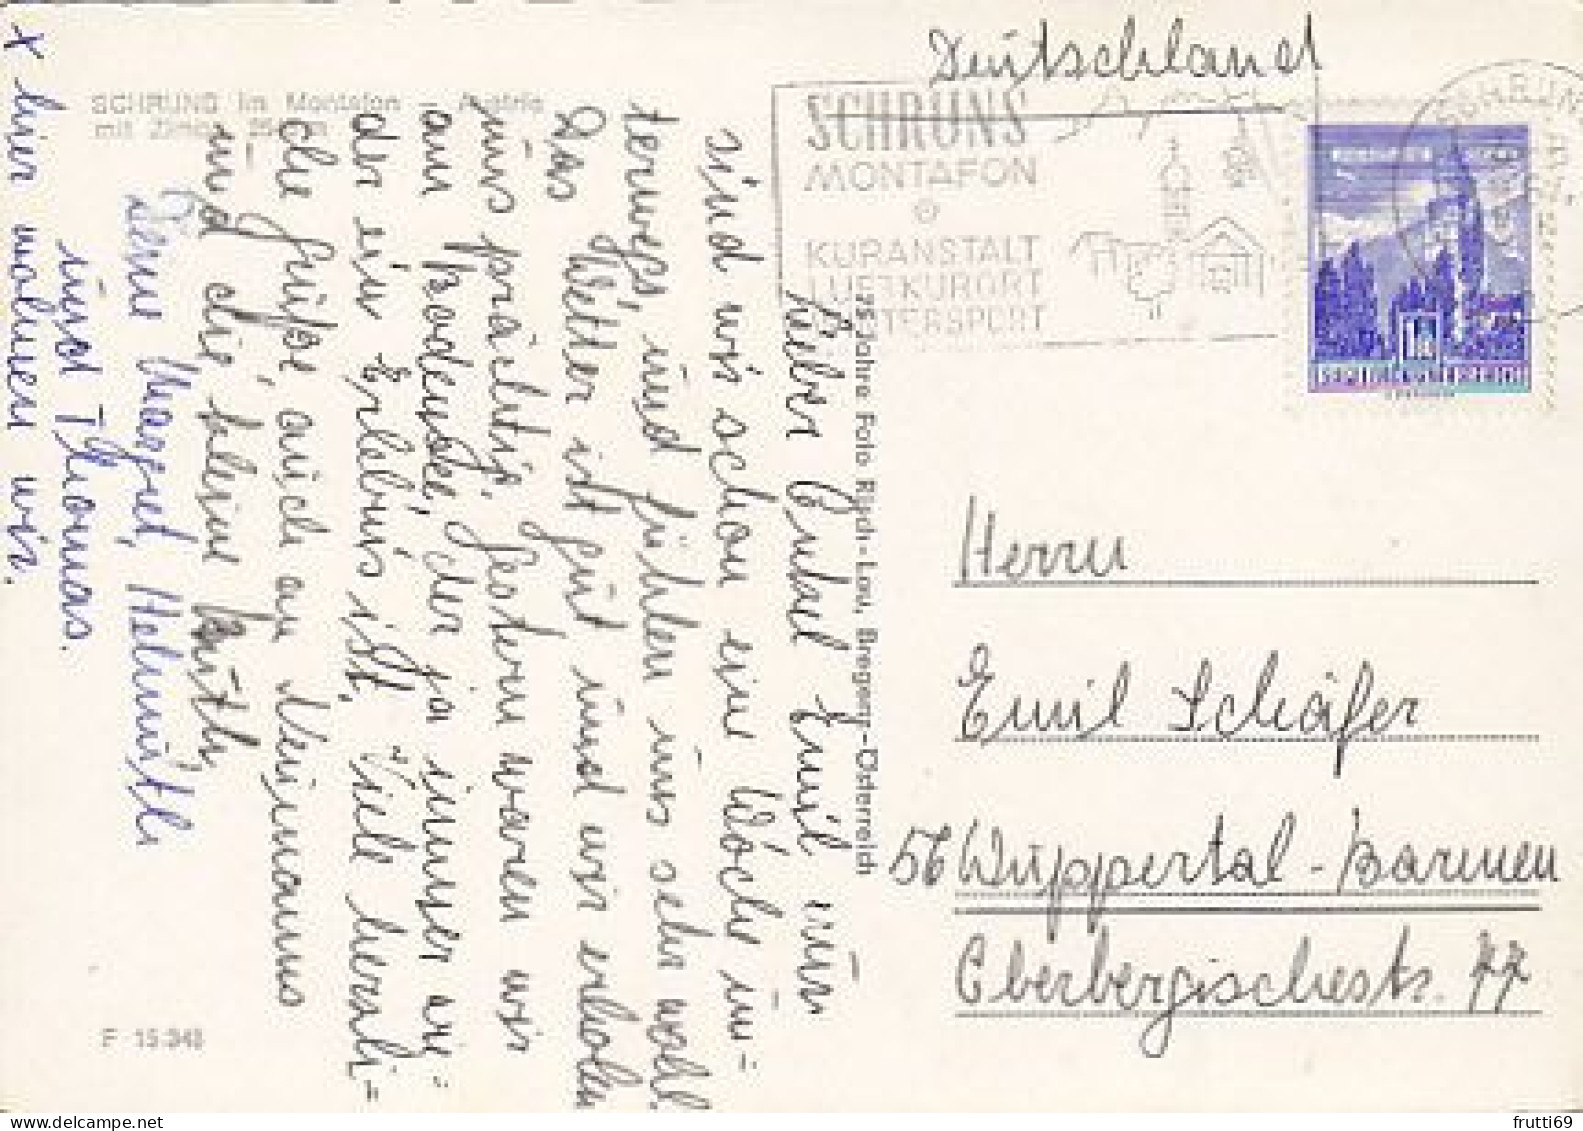 SCHRUNS im Montafon - Austria
mit Zimba,
Lieber Onkel Emil, nun
sind wir schon eine Woche un=
terwegs, und fühlen uns sehr wohl.
Das Wetter ist gut und wir erholen
uns prächtig. Gestern waren wir
am Bodensee, der ja immer wie=
der ein Erlebnis ist. Viele herzli=
che Grüße, auch an Neumanns
und die kleine
Deine Margret, Helmuth
und Thomas.
x hier wohnen wir.
F 15 343
75 Jahre Foto Risch-Lau, Bregenz-Österreich
Deutschland
SCHRUNS
MONTAFON
KURANSTALT
LUFTKURORT
WINTERSPORT
SCHRUNS
REPUBLIK ÖSTERREICH
Herrn
Emil Schäfer
56 Wuppertal-Barmen
Oberbergischestr. 77
frutti69